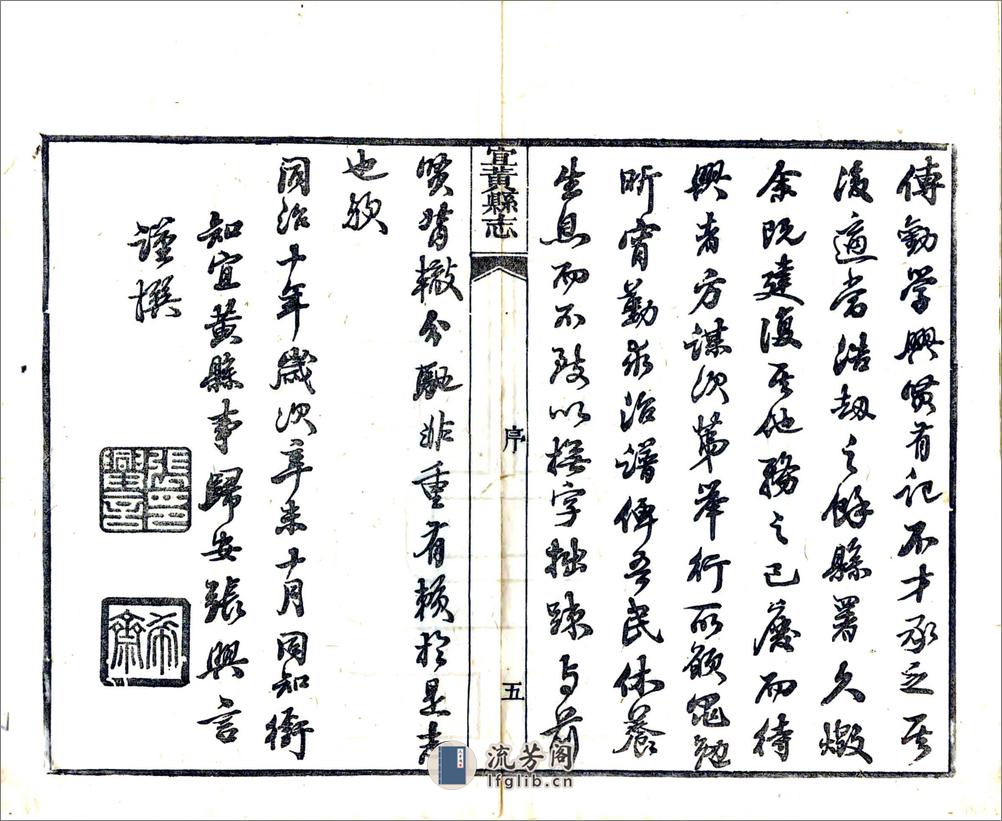 傅勤学興賢有記不才承乏其
後適當浩劫之餘縣署久燬
余既建復其他務之已廢而待
興者方謀次第舉行所願黽勉
昕宵勤求治譜俾吾民休養
生息而不致以撫字拙踈与前
宜黃縣志
序
五
賢背轍分馳非重有賴於是書
也欤
同治十年歲次辛未十月同知銜
知宜黃縣事歸安張興言
謹撰
張興言印
希齋
流芳阁
lfglib.cn